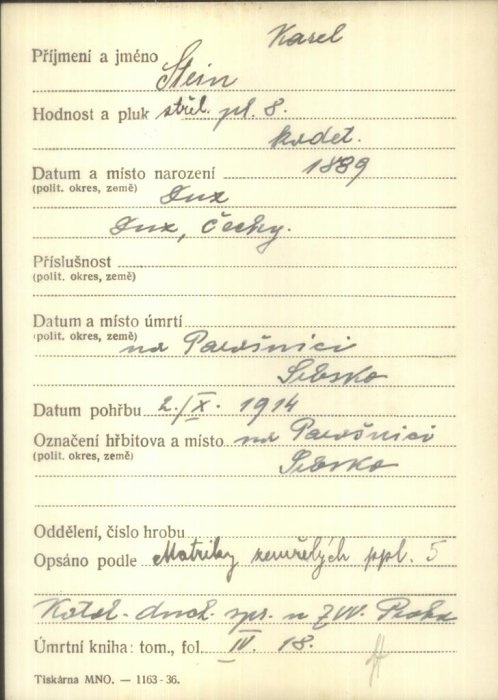 Karel
Příjmení a jméno Stein
Hodnost a pluk střel. pl. 8.
kadet.
Datum a místo narození 1889
(polit. okres, země) Dux
Dux, Čechy.
Příslušnost
(polit. okres, země)
Datum a místo úmrtí
(polit. okres, země)
na Parašnici
Srbsko
Datum pohřbu 2./X. 1914
Označení hřbitova a místo na Parašnici
(polit. okres, země) Srbsko
Oddělení, číslo hrobu
Opsáno podle Matriky zemřelých ppl. 5
Katol. duch. spr. u ZVV. Praha
Úmrtní kniha: tom., fol. IV. 18.
Tiskárna MNO. — 1163-36.